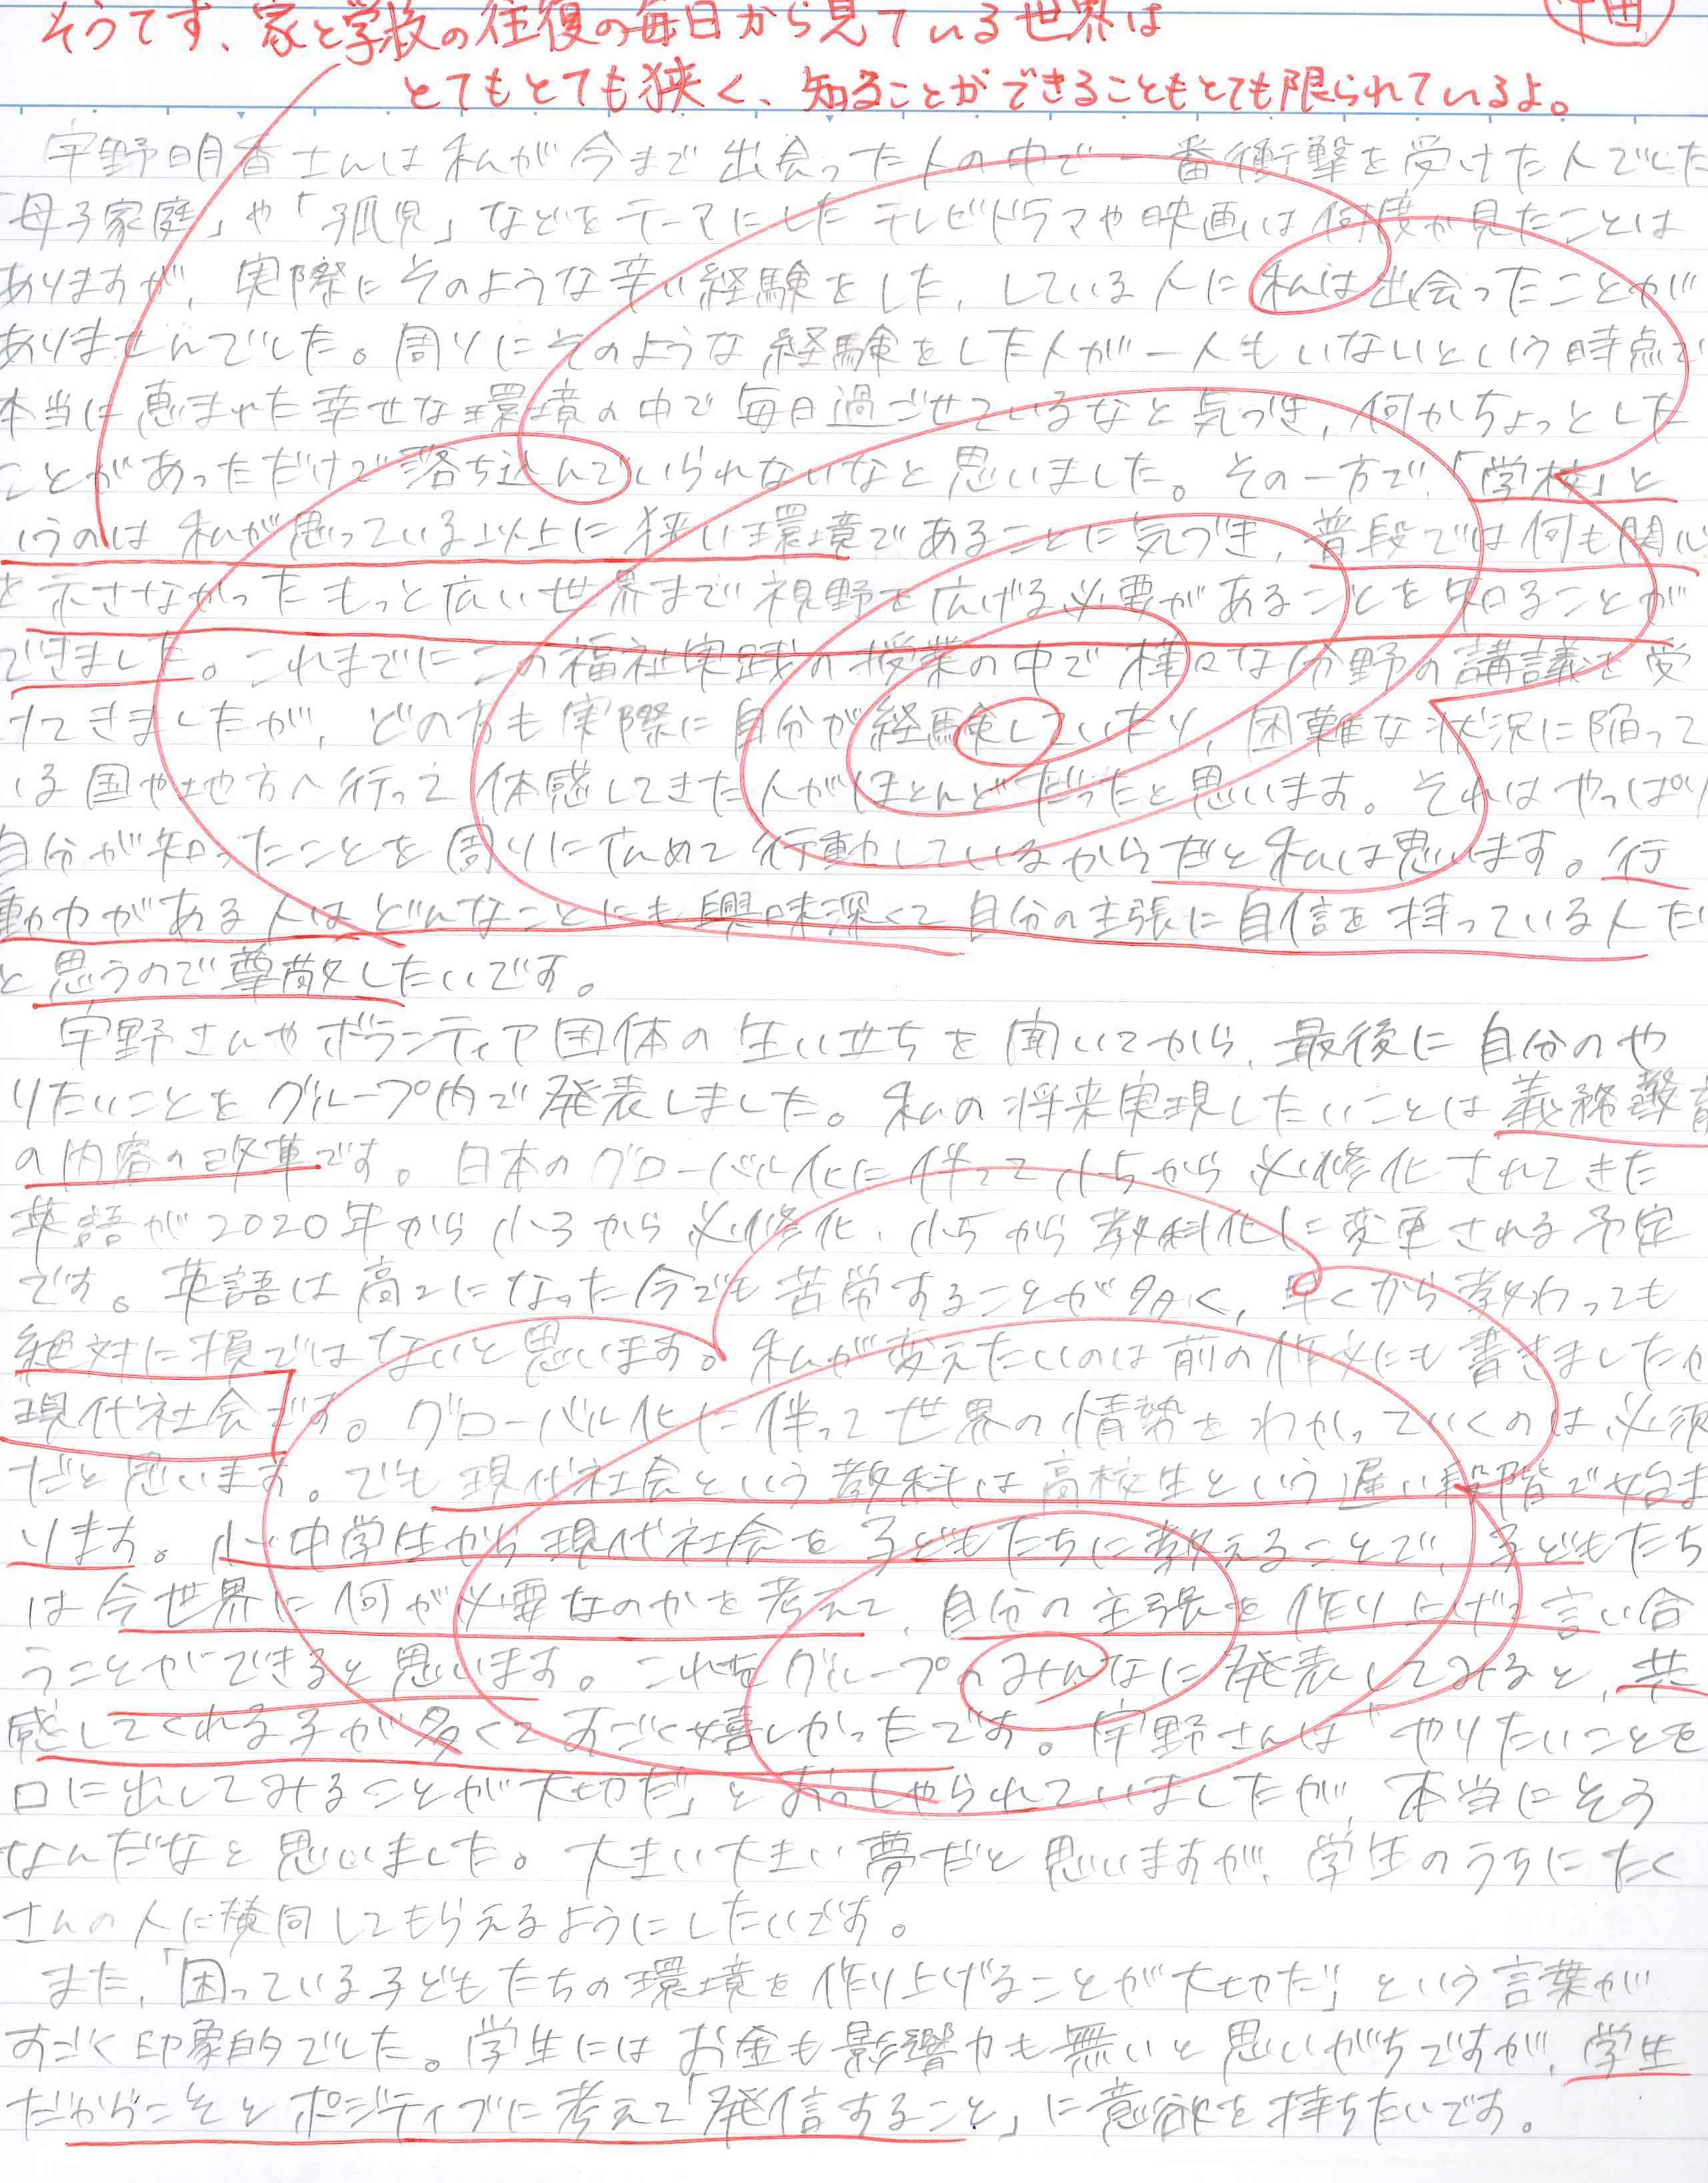 そうです、家と学校の往復の毎日から見ている世界は
とてもとても狭く、知ることができることもとても限られているよ。
宇野明香さんは私が今まで出会った人の中で一番衝撃を受けた人でした
「母子家庭」や「孤児」などをテーマにしたテレビドラマや映画は何度か見たことは
ありますが、実際にそのような辛い経験をした、している人に私は出会ったことが
ありませんでした。周りにそのような経験をした人が一人もいないという時点で
本当に恵まれた幸せな環境の中で毎日過ごせているなと気づき、何かちょっとした
ことがあっただけで落ち込んでいられないなと思いました。その一方で、「学校」と
いうのは私が思っている以上に狭い環境であることに気づき、普段では何も関心
を示さなかったもっと広い世界まで視野を広げる必要があることを知ることが
できました。これまでにこの福祉実践の授業の中で様々な分野の講議を受
けてきましたが、どの方も実際に自分が経験していたり、困難な状況に陥って
いる国や地方へ行って体感してきた人がほとんどだったと思います。それはやっぱり
自分が知ったことを周りに広めて行動しているからだと私は思います。行
動力がある人はどんなことにも興味深くて自分の主張に自信を持っている人だ
と思うので尊敬したいです。
宇野さんやボランティア団体の生い立ちを聞いてから、最後に自分のや
りたいことをグループ内で発表しました。私の将来実現したいことは義務教育
の内容の改革です。日本のグローバル化に伴って小5から必修化されてきた
英語が2020年から小3から必修化、小5から教科化に変更される予定
です。英語は高2になった今でも苦労することが多く、早くから教わっても
絶対に損ではないと思います。私が変えたいのは前の作文にも書きましたが
現代社会です。グローバル化に伴って世界の情勢をわかっていくのは必須
だと思います。でも現代社会という教科は高校生という遅い段階で始ま
ります。小・中学生から現代社会を子どもたちに教えることで、子どもたち
は今世界に何が必要なのかを考えて、自分の主張を作り上げて言い合
うことができると思います。これをグループのみんなに発表してみると、共
感してくれる子が多くてすごく嬉しかったです。宇野さんは「やりたいことを
口に出してみることが大切だ」とおっしゃられていましたが、本当にそう
なんだなと思いました。大きい大きい夢だと思いますが、学生のうちにたく
さんの人に賛同してもらえるようにしたいです。
また、「困っている子どもたちの環境を作り上げることが大切だ」という言葉が
すごく印象的でした。学生にはお金も影響力も無いと思いがちですが、学生
だからこそとポジティブに考えて「発信すること」に意欲を持ちたいです。